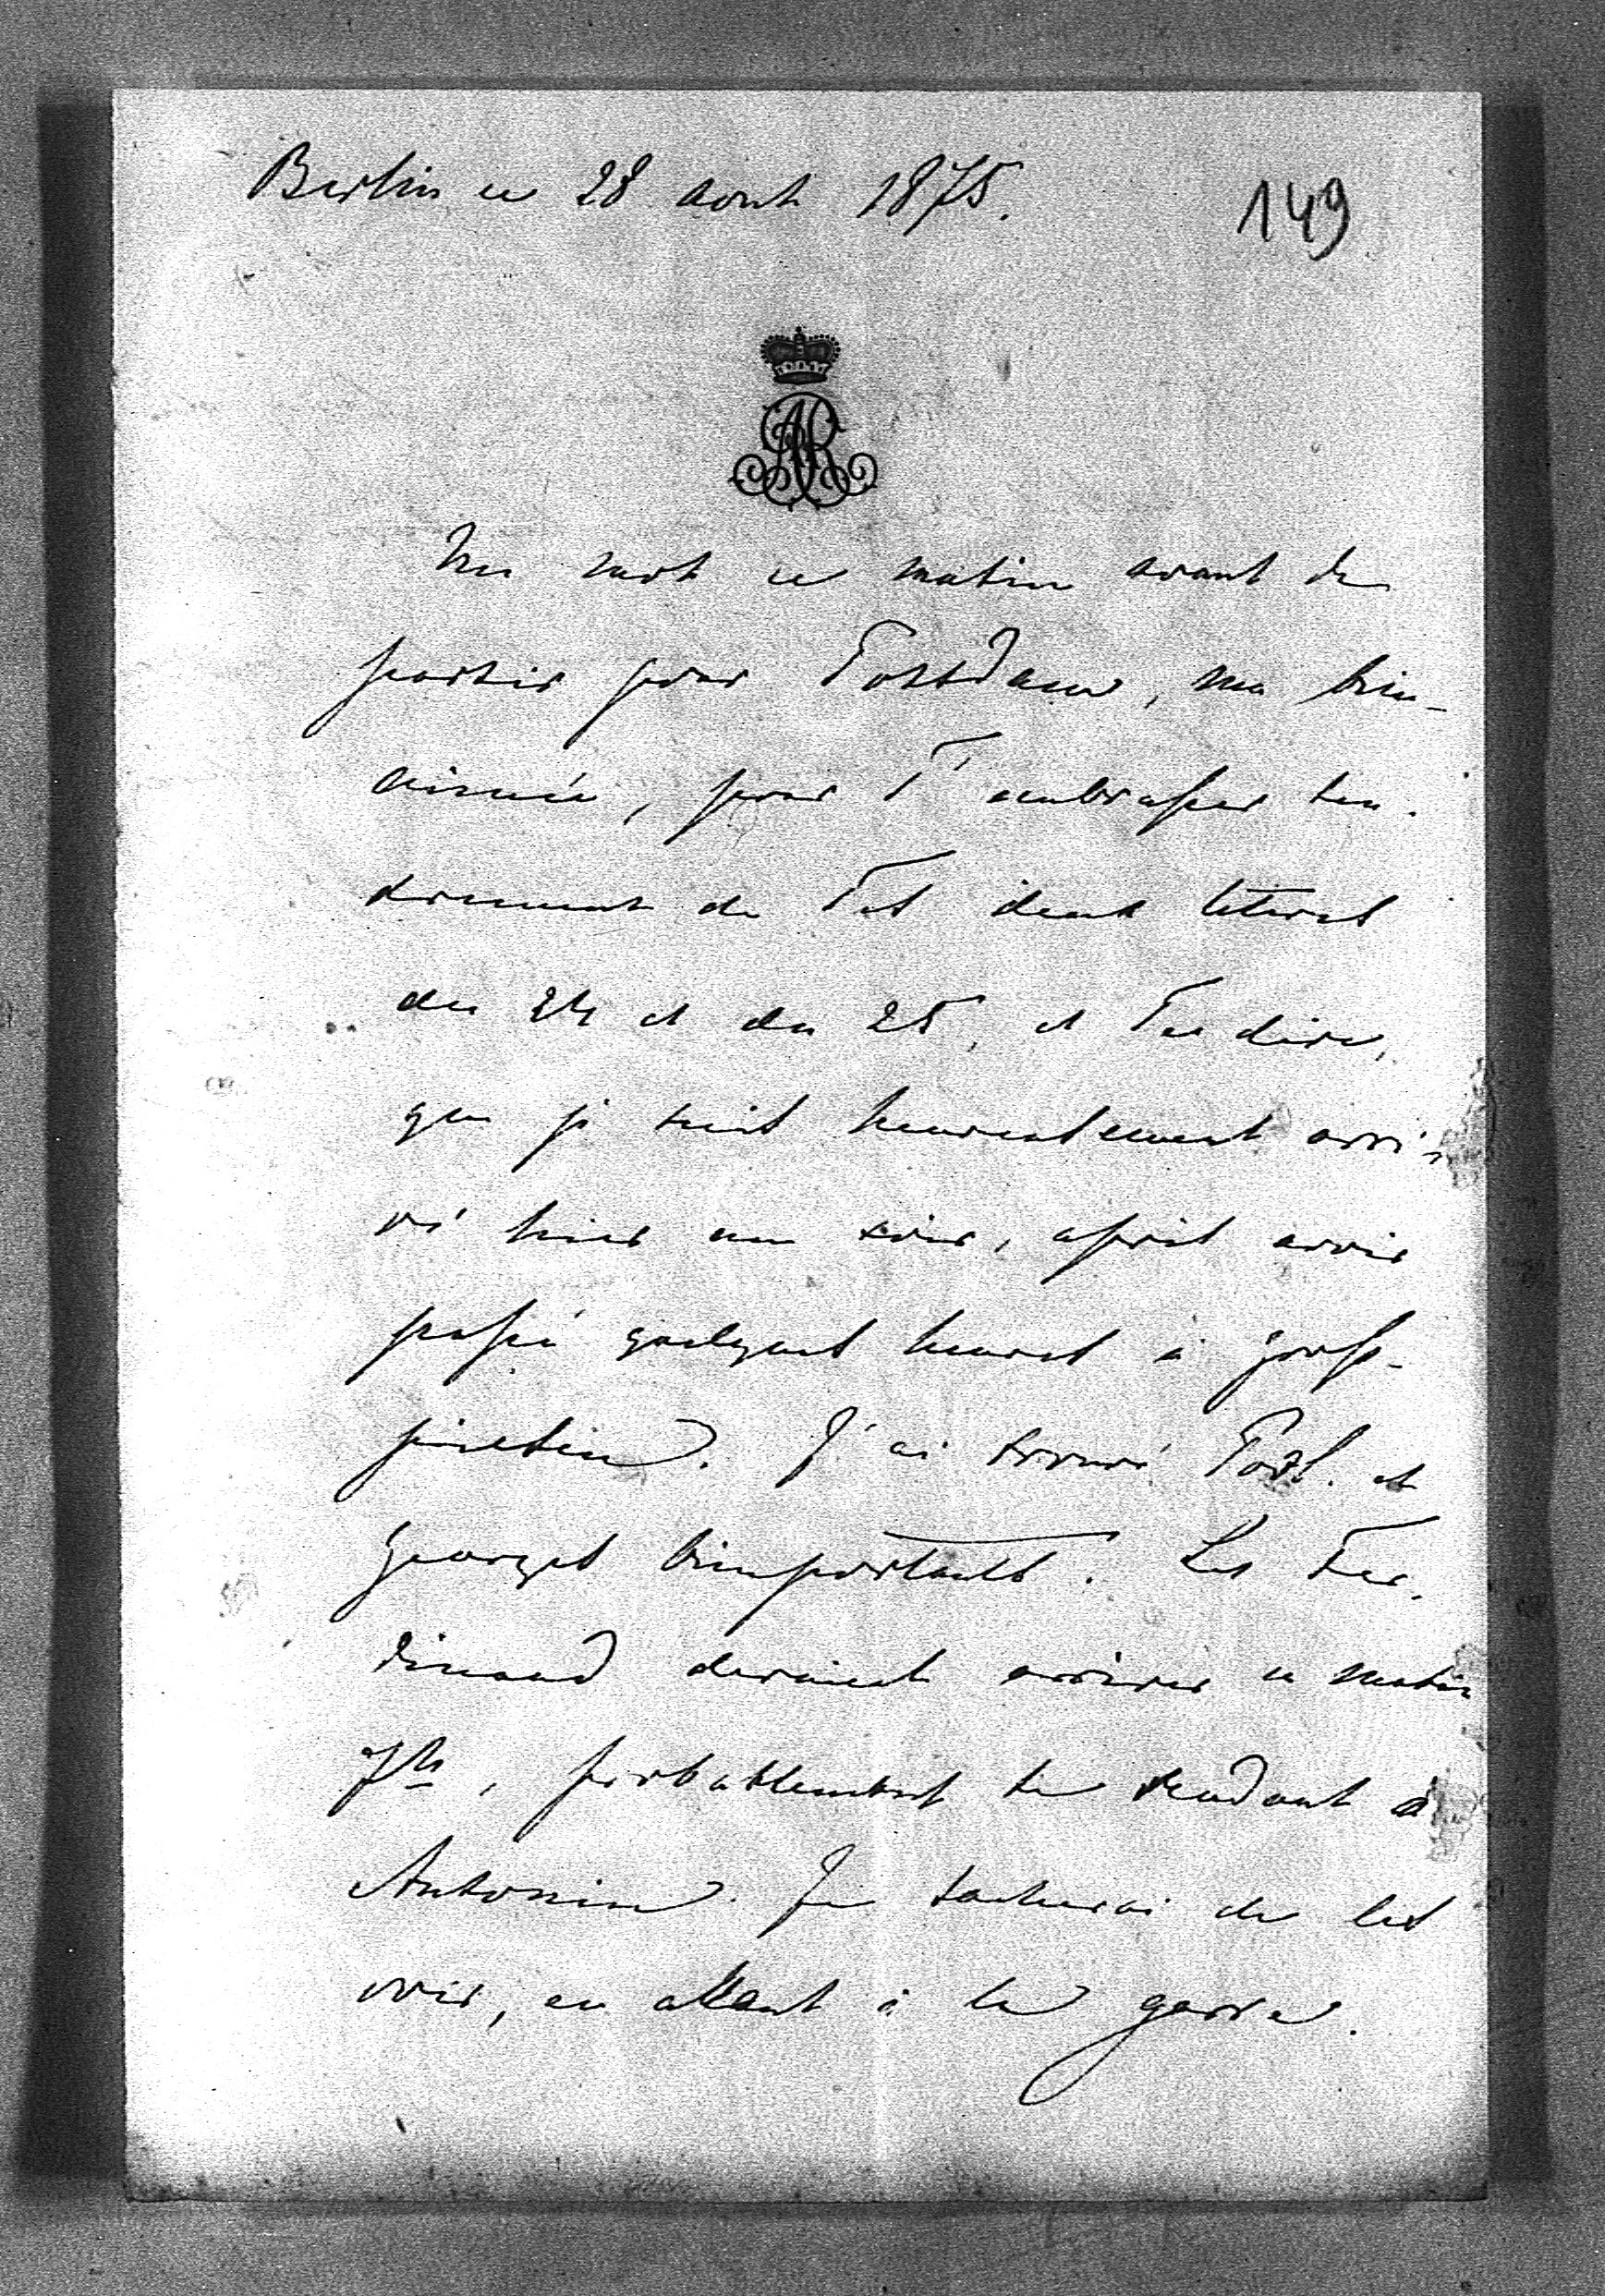 Berlin ce 28 aout 1875.
149
AR
Un mot ce matin avant de
partir pour Potsdam, ma bien-
aimée, pour T'embrasser ten-
drement de Tes deux lettres
du 24 et du 25, et Te dire,
que je suis heureusement arri-
vé hier au soir, après avoir
passé quelques heures à
J'ai trouvé et
Georges bienportants. Les Fer-
dinand devaient arriver ce matin
7h, probablement se rendant à
Antonin. Je tacherai de les
voir, en allant à la garre.